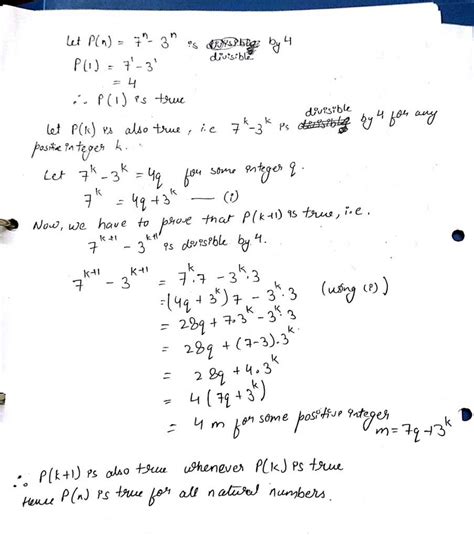 Let P(n) = 7ⁿ - 3ⁿ is divisible by 4
P(1) = 7¹ - 3¹
= 4
∴ P(1) is true
Let P(k) is also true, i.e 7ᵏ-3ᵏ is divisible by 4 for any
positive integer k.
Let 7ᵏ - 3ᵏ = 4q for some integer q.
7ᵏ = 4q + 3ᵏ — (i)
Now, we have to prove that P(k+1) is true, i.e.
7ᵏ⁺¹ - 3ᵏ⁺¹ is divisible by 4.
7ᵏ⁺¹ - 3ᵏ⁺¹ = 7ᵏ.7 - 3ᵏ.3
= (4q + 3ᵏ)7 - 3ᵏ.3 (using (i))
= 28q + 7.3ᵏ - 3ᵏ.3
= 28q + (7-3).3ᵏ
= 28q + 4.3ᵏ
= 4(7q + 3ᵏ)
= 4m for some positive integer
m = 7q + 3ᵏ
∴ P(k+1) is also true whenever P(k) is true
Hence P(n) is true for all natural numbers.